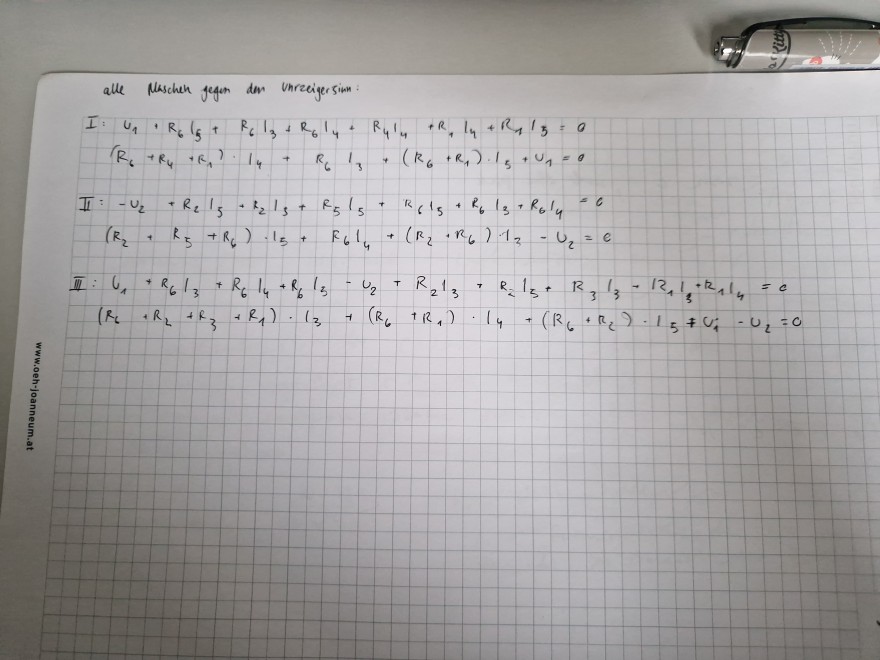 alle Maschen gegen den Uhrzeigersinn:
I: U1 + R6 I5 + R6 I3 + R6 I4 + R4 I4 + R1 I4 + R1 I3 = 0
(R6 + R4 + R1) · I4 + R6 I3 + (R6 + R1) · I5 + U1 = 0
II: -U2 + R2 I5 + R2 I3 + R5 I5 + R6 I5 + R6 I3 + R6 I4 = 0
(R2 + R5 + R6) · I5 + R6 I4 + (R2 + R6) · I3 - U2 = 0
III: U1 + R6 I3 + R6 I4 + R6 I5 - U2 + R2 I3 + R2 I5 + R3 I3 + R1 I3 + R1 I4 = 0
(R6 + R2 + R3 + R1) · I3 + (R6 + R1) · I4 + (R6 + R2) · I5 + U1 - U2 = 0
www.oeh-joanneum.at